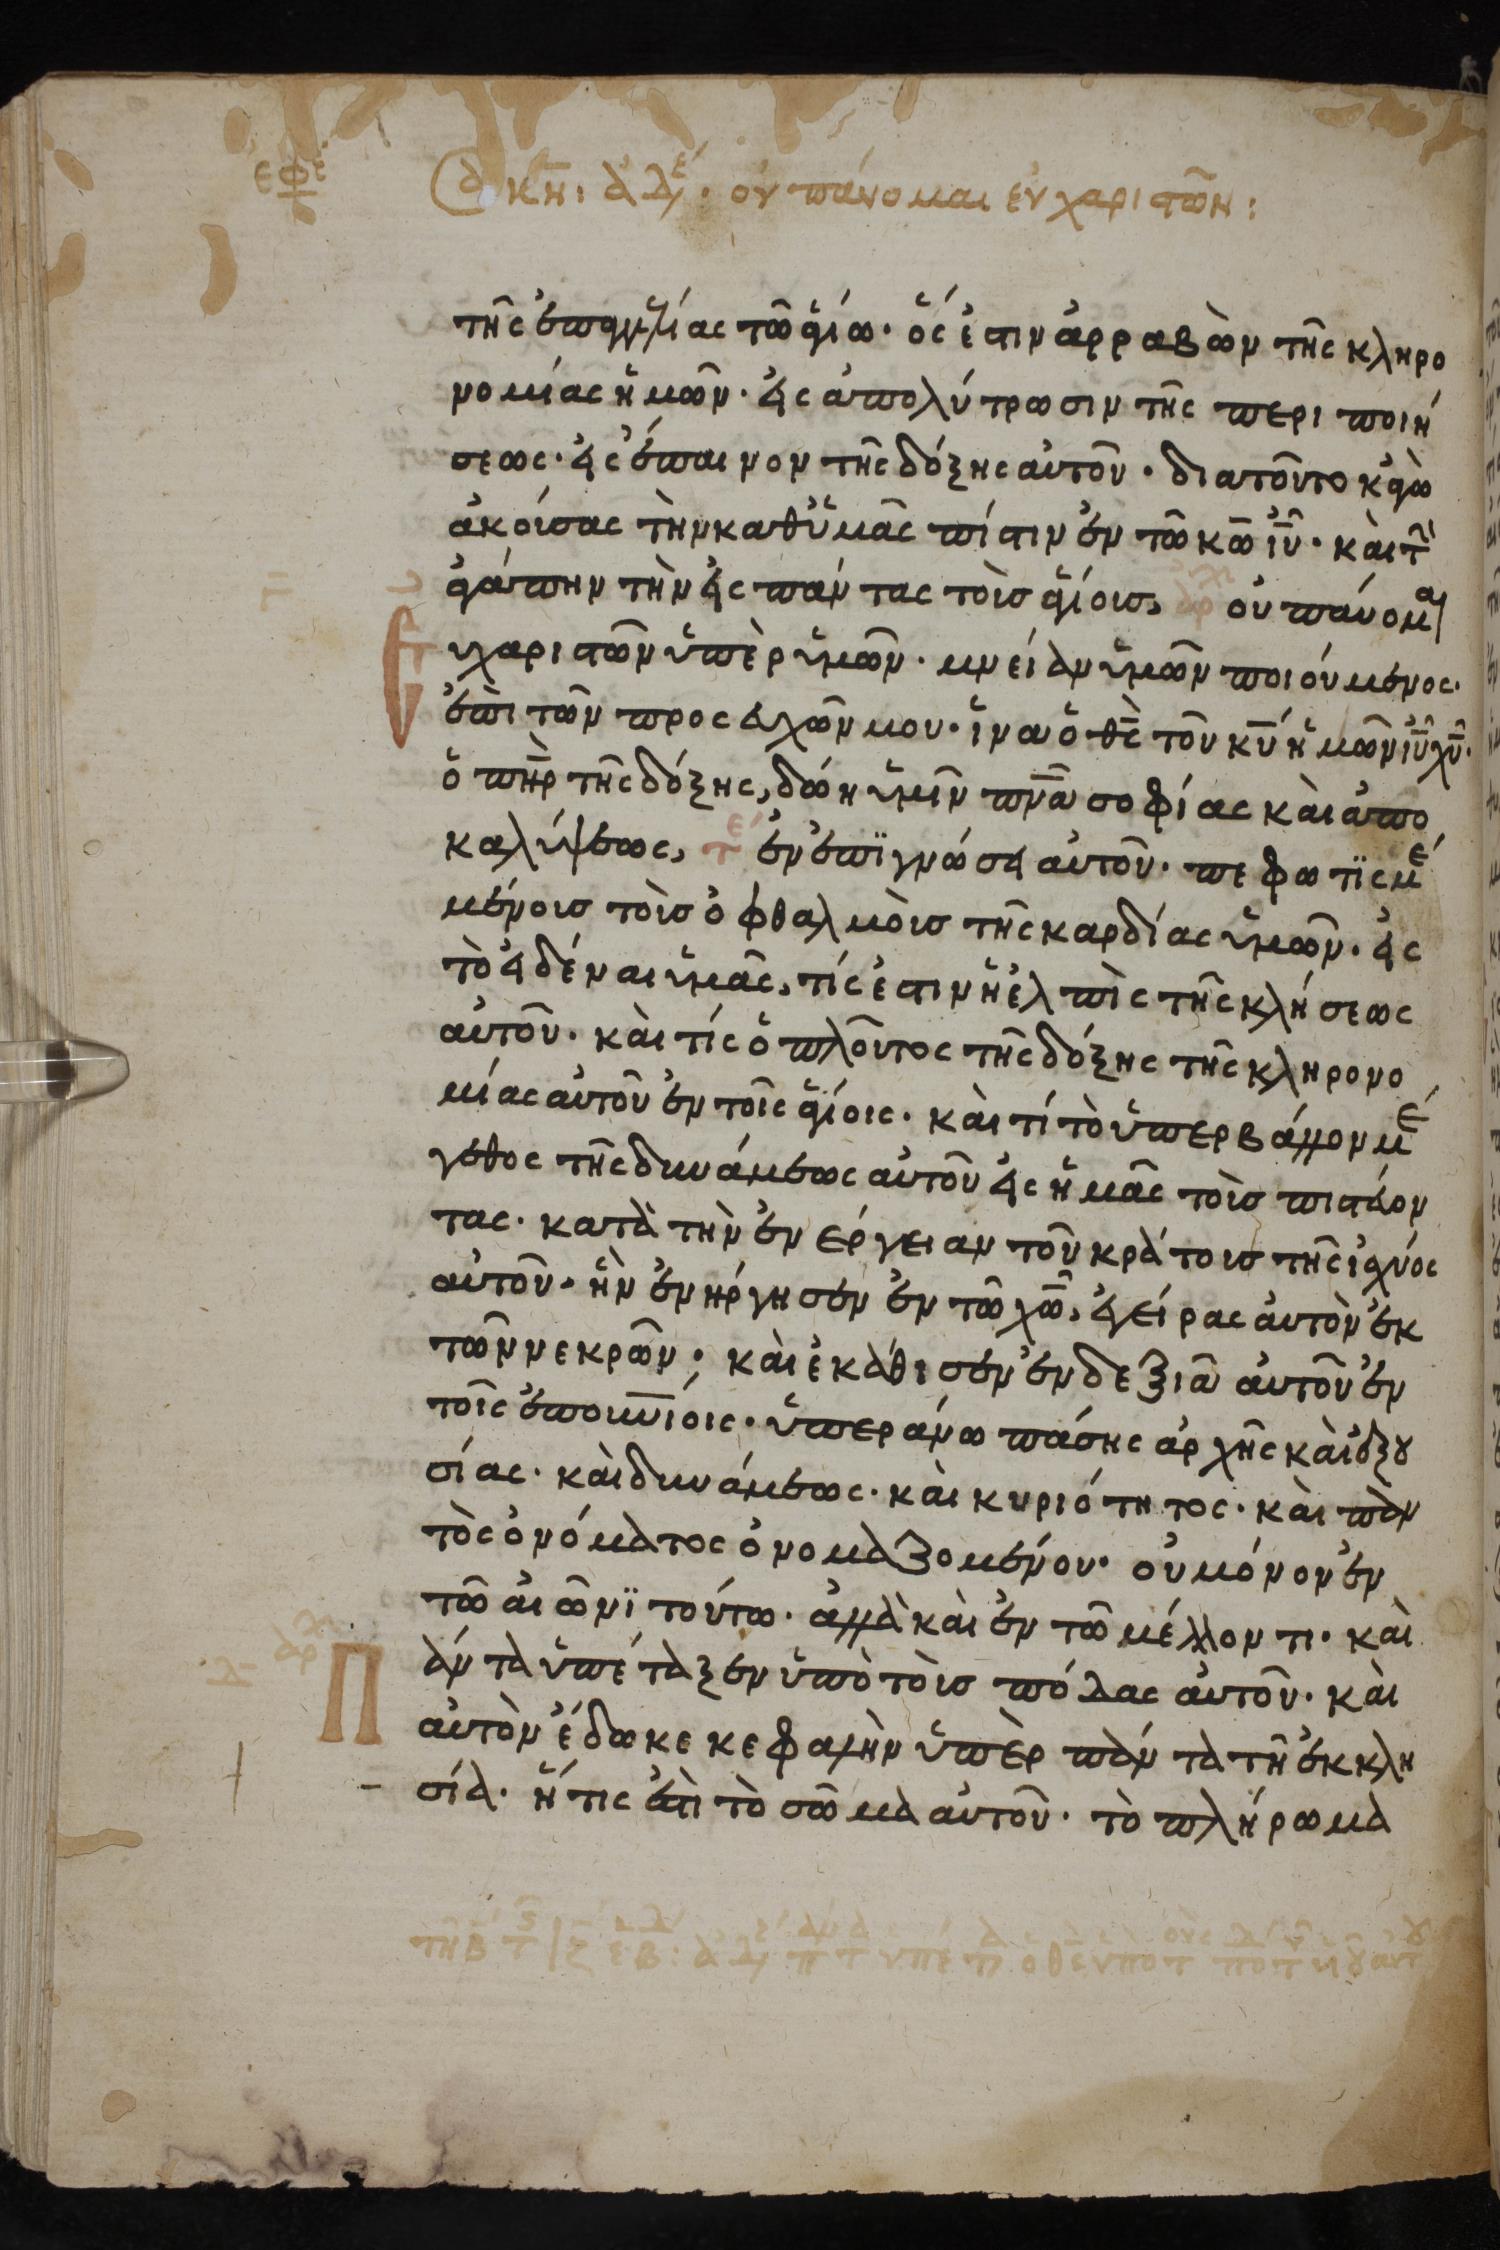 ἐφε
κη: ἀδε. οὐ παύομαι εὐχαριστῶν:
τῆς ἐπαγγελίας τῶ ἁγίω. ὅς ἐστιν ἀρραβὼν τῆς κληρο
νομίας ἡμῶν. εἰς ἀπολύτρωσιν τῆς περιποιή
σεως. εἰς ἔπαινον τῆς δόξης αὐτοῦ. διατοῦτο κἀγὼ
ἀκούσας τὴν καθ ὑμᾶς πίστιν ἐν τῶ κω ιυ. καὶ τὴν
ἀγάπην τὴν εἰς πάντας τοὺς ἁγίους, ἀρχ οὐ παύομαι
εὐχαριστῶν ὑπὲρ ὑμῶν. μνείαν ὑμῶν ποιούμενος.
ἐπὶ τῶν προσευχῶν μου. ἵνα ὁ θς τοῦ κυ ἡμῶν ιυ χυ.
ὁ πηρ τῆς δόξης, δώη ὑμῖν πνα σοφίας καὶ ἀπο
καλύψεως, τε ἐν ἐπϊγνώσει αὐτοῦ. πεφωτϊσμε
μένους τοὺς ὀφθαλμοὺς τῆς καρδίας ὑμῶν. εἰς
τὸ εἰδέναι ὑμᾶς, τίς ἐστιν ἡ ἐλπὶς τῆς κλήσεως
αὐτοῦ. καὶ τίς ὁ πλοῦτος τῆς δόξης τῆς κληρονο
μίας αὐτοῦ ἐν τοῖς ἁγίοις. καὶ τί τὸ ὑπερβάλλον μέ
γεθος τῆς δυνάμεως αὐτοῦ εἰς ἡμᾶς τοὺς πιστεύον
τας. κατὰ τὴν ἐνέργειαν τοῦ κράτους τῆς ἰσχύος
αὐτοῦ. ἣν ἐνήργησεν ἐν τῶ χω, ἐγείρας αὐτὸν ἐκ
τῶν νεκρῶν; καὶ ἐκάθισεν ἐν δεξιᾶ αὐτοῦ ἐν
τοῖς ἐπουνίοις. ὑπεράνω πάσης ἀρχῆς καὶ ἐξου
σίας. καὶ δυνάμεως. καὶ κυριότητος. καὶ παν
τὸς ὀνόματος ὀνομαζομένου. οὐ μόνον ἐν
τῶ αἰῶνϊ τούτω. ἀλλὰ καὶ ἐν τῶ μέλλοντι. καὶ
Πάντα ὑπέταξεν ὑπὸ τοὺς πόδας αὐτοῦ. καὶ
αὐτὸν ἔδωκε κεφαλὴν ὑπὲρ πάντα τῆ ἐκκλη
σία. ἥτις ἐστὶ τὸ σῶμα αὐτοῦ. τὸ πλήρωμα